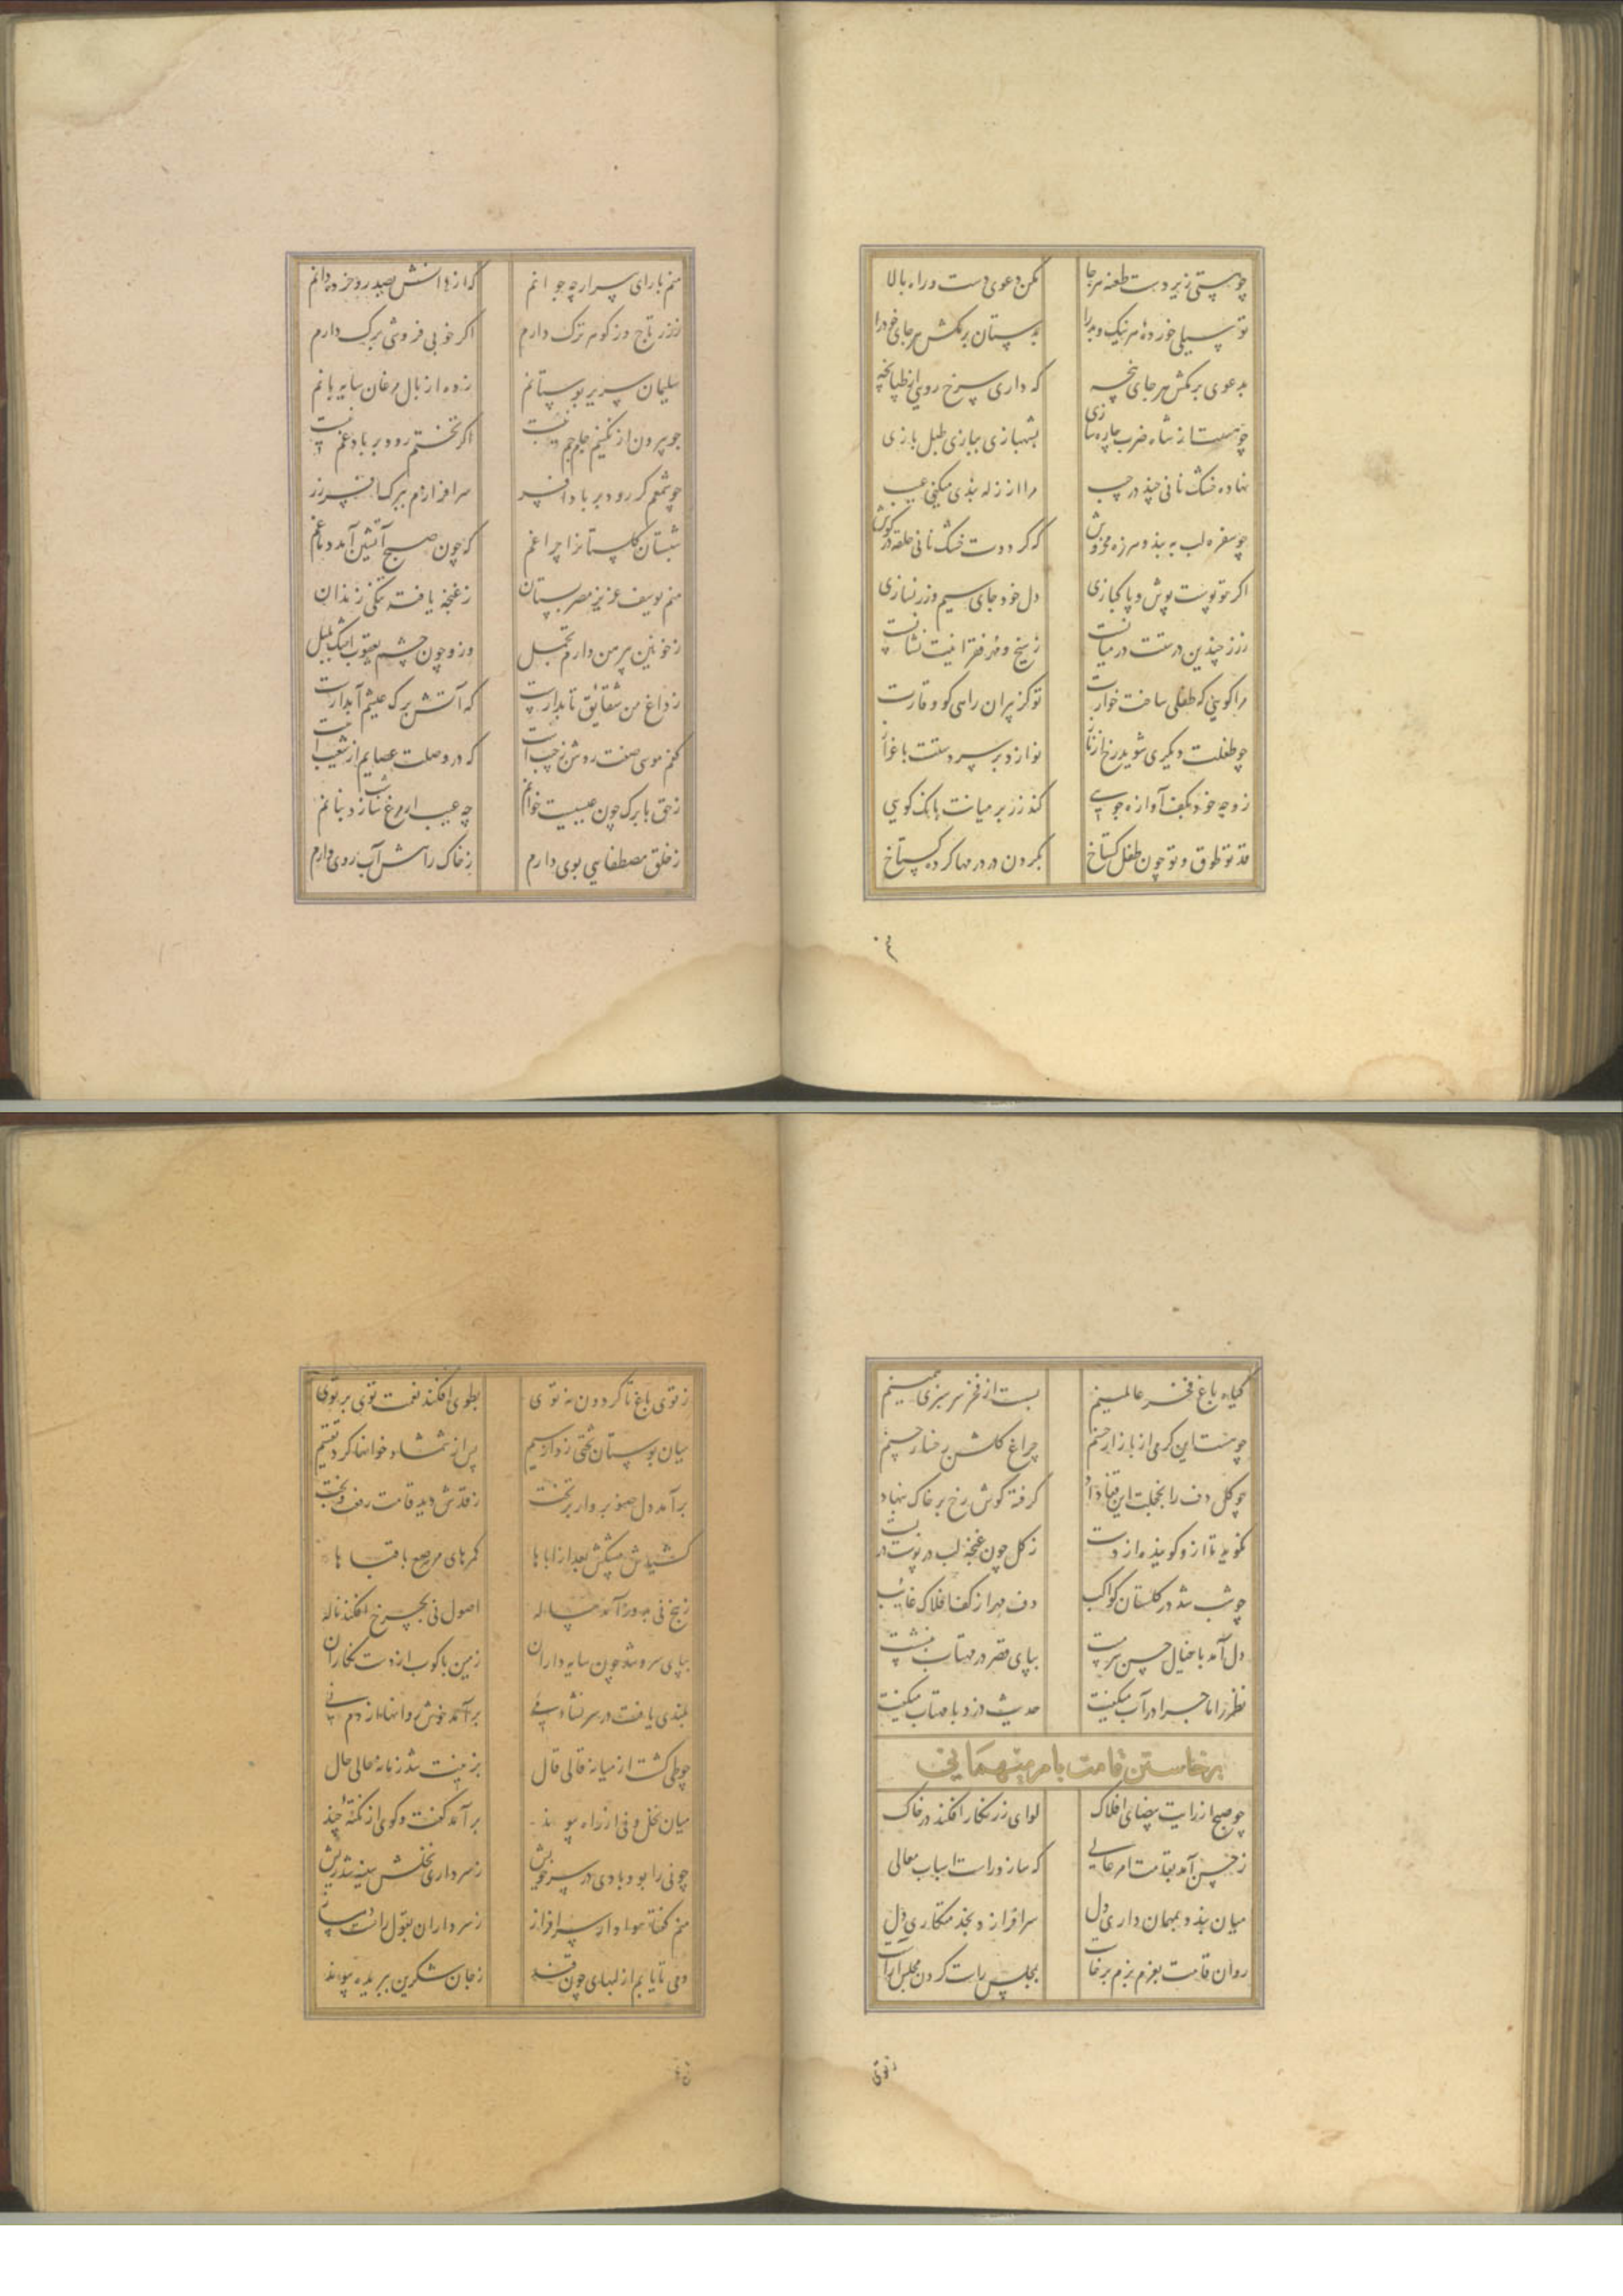 چو هستی زیر دست طعنه هرجا مکن دعوی دست و راه بالا
تو سیلی خورده هر نیک و بد را به بستان برمکش هر جای خود را
بدعوی برمکش هر جای پنجه که داری سرخ رویی از طپانچه
چو هست از شاه ضرب چاره سازی بشهبازی ببازی طبل بازی
نهاده خشک نانی چند در جیب مرا از زله بندی میکنی عیب
چو سفره لب به بند و هرزه مخروش که کردت خشک نانی حلقه در گوش
اگر تو پوست پوش و پاکبازی دل خود جای سیم و زر نسازی
ز زر چندین درستت در میانست ز سیخ و مهر فقرا نیت نشانست
مرا گویی که طفلی ساخت خوارت تو کز پیران راهی کو وقارت
چو طفلت دیگری شوید رخ از ناز نوازد بر سر دستت باغزاز
ز وجه خود بکف آوازه جویی کند زر بر میانت بانک گویی
قد تو طوق و تو چون طفل گستاخ بگردن در درمها کرده گستاخ
منم
منم بارای سر ارچه جوانم که از دانش صد روخرده دانم
ز زر تاج و ز گوهر ترک دارم اگر خوبی فروشی برگ دارم
سلیمان سریر بوستانم زده از بال مرغان سایه بانم
چو بیرون از نگینم جام جم نیست اگر تختم رود بر باد غم نیست
چو شمعم گر رود بر باد افسر سرافرازم ببرگ افسر زر
شبستان گلستانرا چراغم که چون صبح آتشین آمد دماغم
منم یوسف عزیز مصر بستان ز غنچه یافته تنگی زندان
ز خونین پیرهن دارم تجمل وزو چون چشم یعقوب اشک بلبل
ز داغ من شقایق تابدارست که آتش برگ عیشم آبدارست
کفم موسی صفت روشن ز جیب است که در وصلت عصایم از شعیب است
ز حق بابرگ چون عیسیست خوانم چه عیب ار مرغ سازد بنانم
ز خلق مصطفایی بوی دارم ز خاک راهش آب روی دارم
گیاه باغ فخر عالمینم بست از فخر سرسبزی همینم
چو هست این گرمی از بازار حسنم چراغ گلشن رخسار حسنم
چو گل دف را بخجلت این قفا داد گرفته گوش رخ بر خاک بنهاد
نگوید تا ازو گویند از دست ز گل چون غنچه لب در پوست در بست
چو شب شد در گلستان کواکب دف مهر از کف افلاک غایب
دل آمد با خیال حسن سرمست بپای قصر در مهتاب بنشست
نظر را ماجرا در آب میگفت حدیث دزد با مهتاب میگفت
برخاستن قامت بامر میهمانی
چو صبح از رایت بیضای افلاک لوای زرنگار افکند در خاک
ز حسن آمد بقامت امر عالی که سازد راست اسباب معالی
میان بندد بمهمان داری دل سرافرازد بخدمتکاری دل
روان قامت بعزم بزم برخاست بمجلس راست کردن مجلس آراست
ز توی
ز توی باغ تا گردون نه توی بطوی افکند نعمت توی بر توی
میان بوستان تختی زد از سیم پس از شمشاد خوانها کرد تقسیم
برآمد دل صنوبر وار بر تخت ز قدش دید قامت رفعت بخت
کشیدش پیشکش بعد از اباها کمرهای مرصع با قباها
ز بیخ نی بدور آمد پیاله اصول نی بچرخ افکند ناله
بپای سرو شد چون سایه داران زمین پاکوب از دست نگاران
بلندی یافت در سر نشاء می برآمد خوش نواها از دم نی
چو طی گشت از میانه قالی قال بزینت شد زمانه حالی حال
میان نخل و نی از راه پیوند برآمد گفت و گوی از نکته چند
چو نی را بود بادی در سر خویش ز سرداری نخلش سینه شد ریش
منم گفتا هوادار سرافراز ز سرداران بقول راست ممتاز
دمی تا یابم از لبهای چون قند ز جان شکرین ببریده پیوند